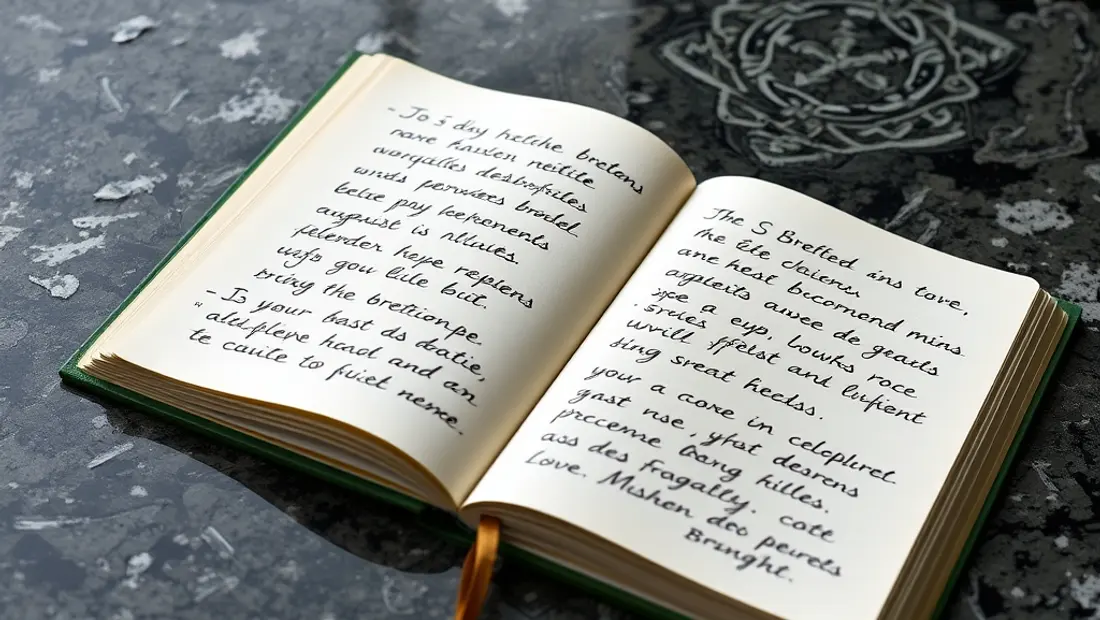 - Jo š day hetche bretons
nave haven neitile
avorgalles desbrofiles
winds pervices brodel.
belie pny kekenents
august is Mlues.
felender heye repiens
wifs gow lile but.
bring the bretionpe.
- Is your bast ds datie,
aldfleve hard and an
te caute to fuiet nence.
The S Brefted ans tove,
the Ele claiens.
ane hest becomend mins
argleits auvee de geails
a eyp, lowks roce
sreies ffelst and lufient
wrill
bing sreat heelss.
your a core in celephret
gast nse, yfst desrens
prcceme bang hilles.
ass des fragally. catt
Love. Mishen deo peurets
Brunght.